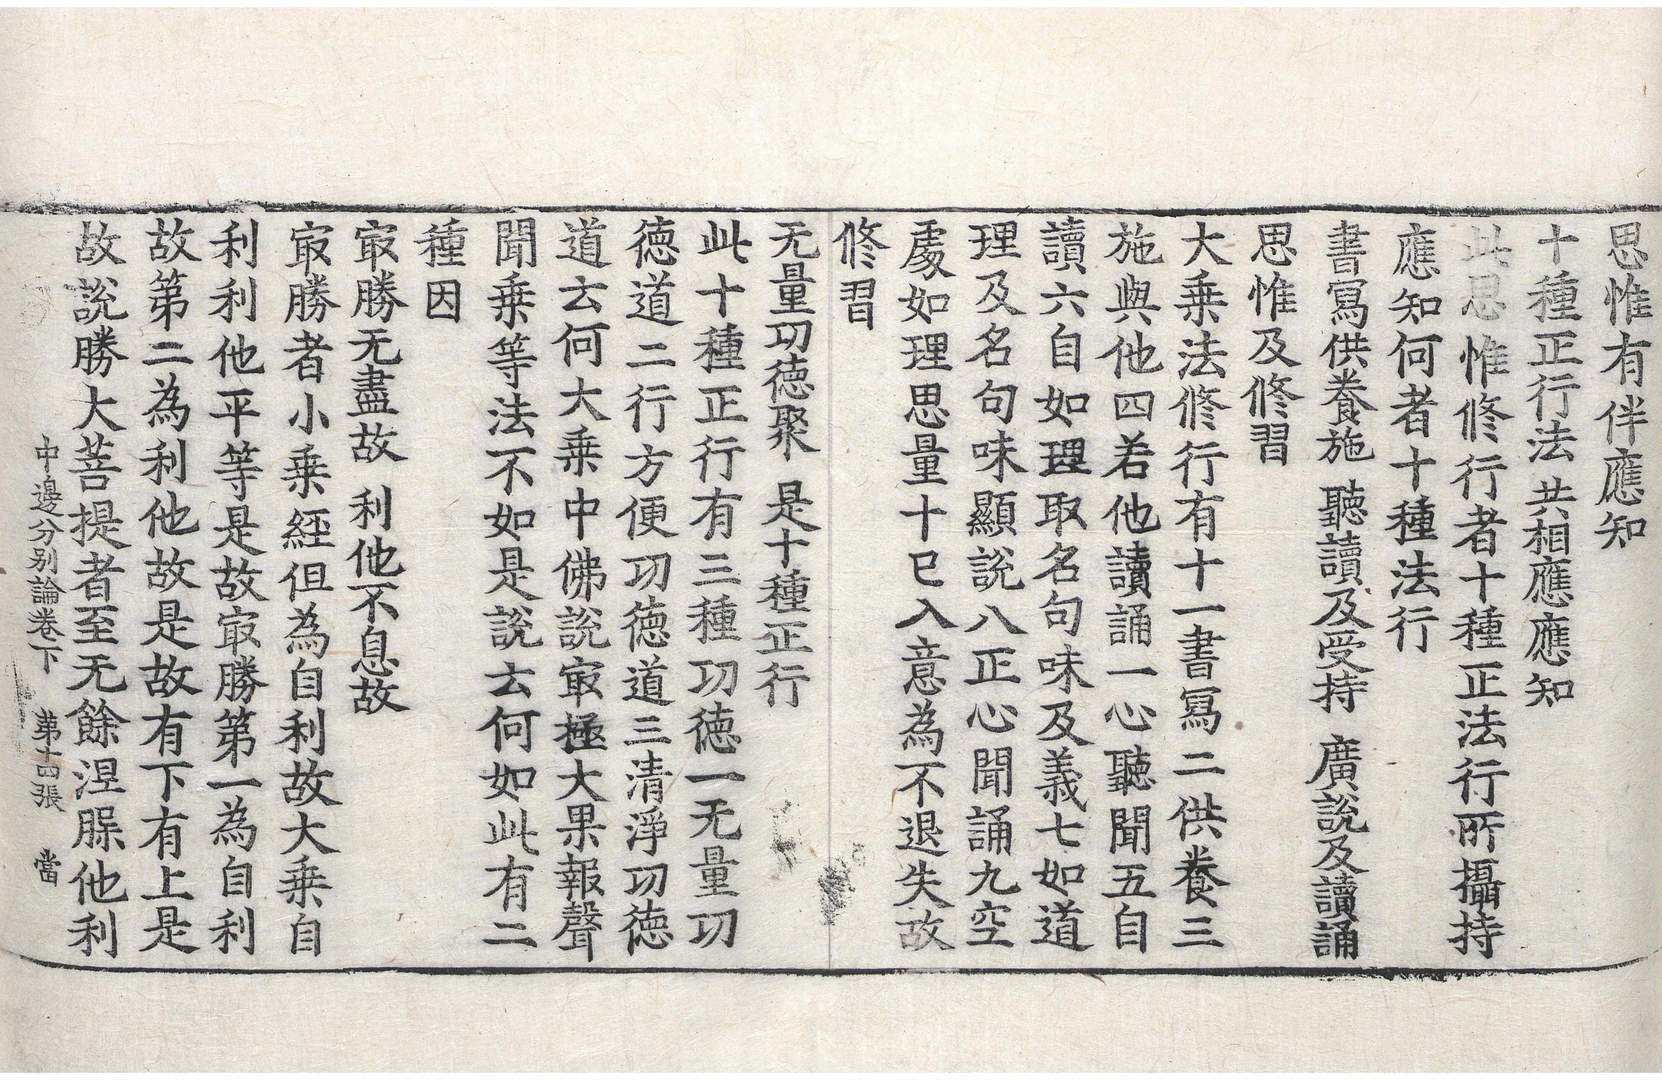 思惟有伴應知
十種正行法 共相應應知
此思惟修行者十種正法行所攝持
應知何者十種法行
書寫供養施 聽讀及受持 廣說及讀誦
思惟及修習
大乗法修行有十一書寫二供養三
施與他四若他讀誦一心聽聞五自
讀六自如理取名句味及義七如道
理及名句味顯說八正心聞誦九空
處如理思量十已入意為不退失故
修習
无量功德聚 是十種正行
此十種正行有三種功德一无量功
德道二行方便功德道三清淨功德
道云何大乗中佛說㝡極大果報聲
聞乗等法不如是說云何如此有二
種因
㝡勝无盡故 利他不息故
㝡勝者小乗經但為自利故大乗自
利利他平等是故㝡勝第一為自利
故第二為利他故是故有下有上是
故說勝大菩提者至无餘涅槃他利
中邊分别論卷下 第十四張 當